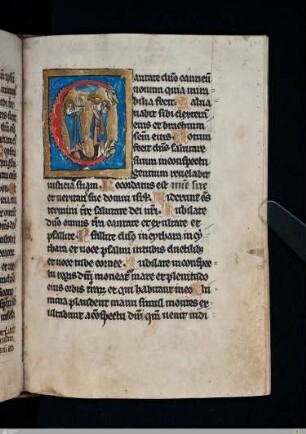 antate dño canticū
nouum quia mira
bilia fecit Salua
uit sibi dextera
eius et brachium
scm̄ eius Notum
fecit dñs salutare
suum in conspectu
gentium reuelauit
iusticiā suam Recordatus est mie sue
et ueritatis sue domui isrl Uiderunt oms
termini tre salutare dei nri Iubilate
dño omnis tra cantate et exultate et
psallite Psallite dño in cythara in cy
thara et uoce psalmi in tubis ductilib;
et uoce tube cornee Iubilate in conspec
tu regis dñi moueat mare et plenitudo
eius orbis trarū et qui habitant in eo Flu
mina plaudent manu simul montes ex
ultabunt a cōspectu dñi qm̄ uenit iudi